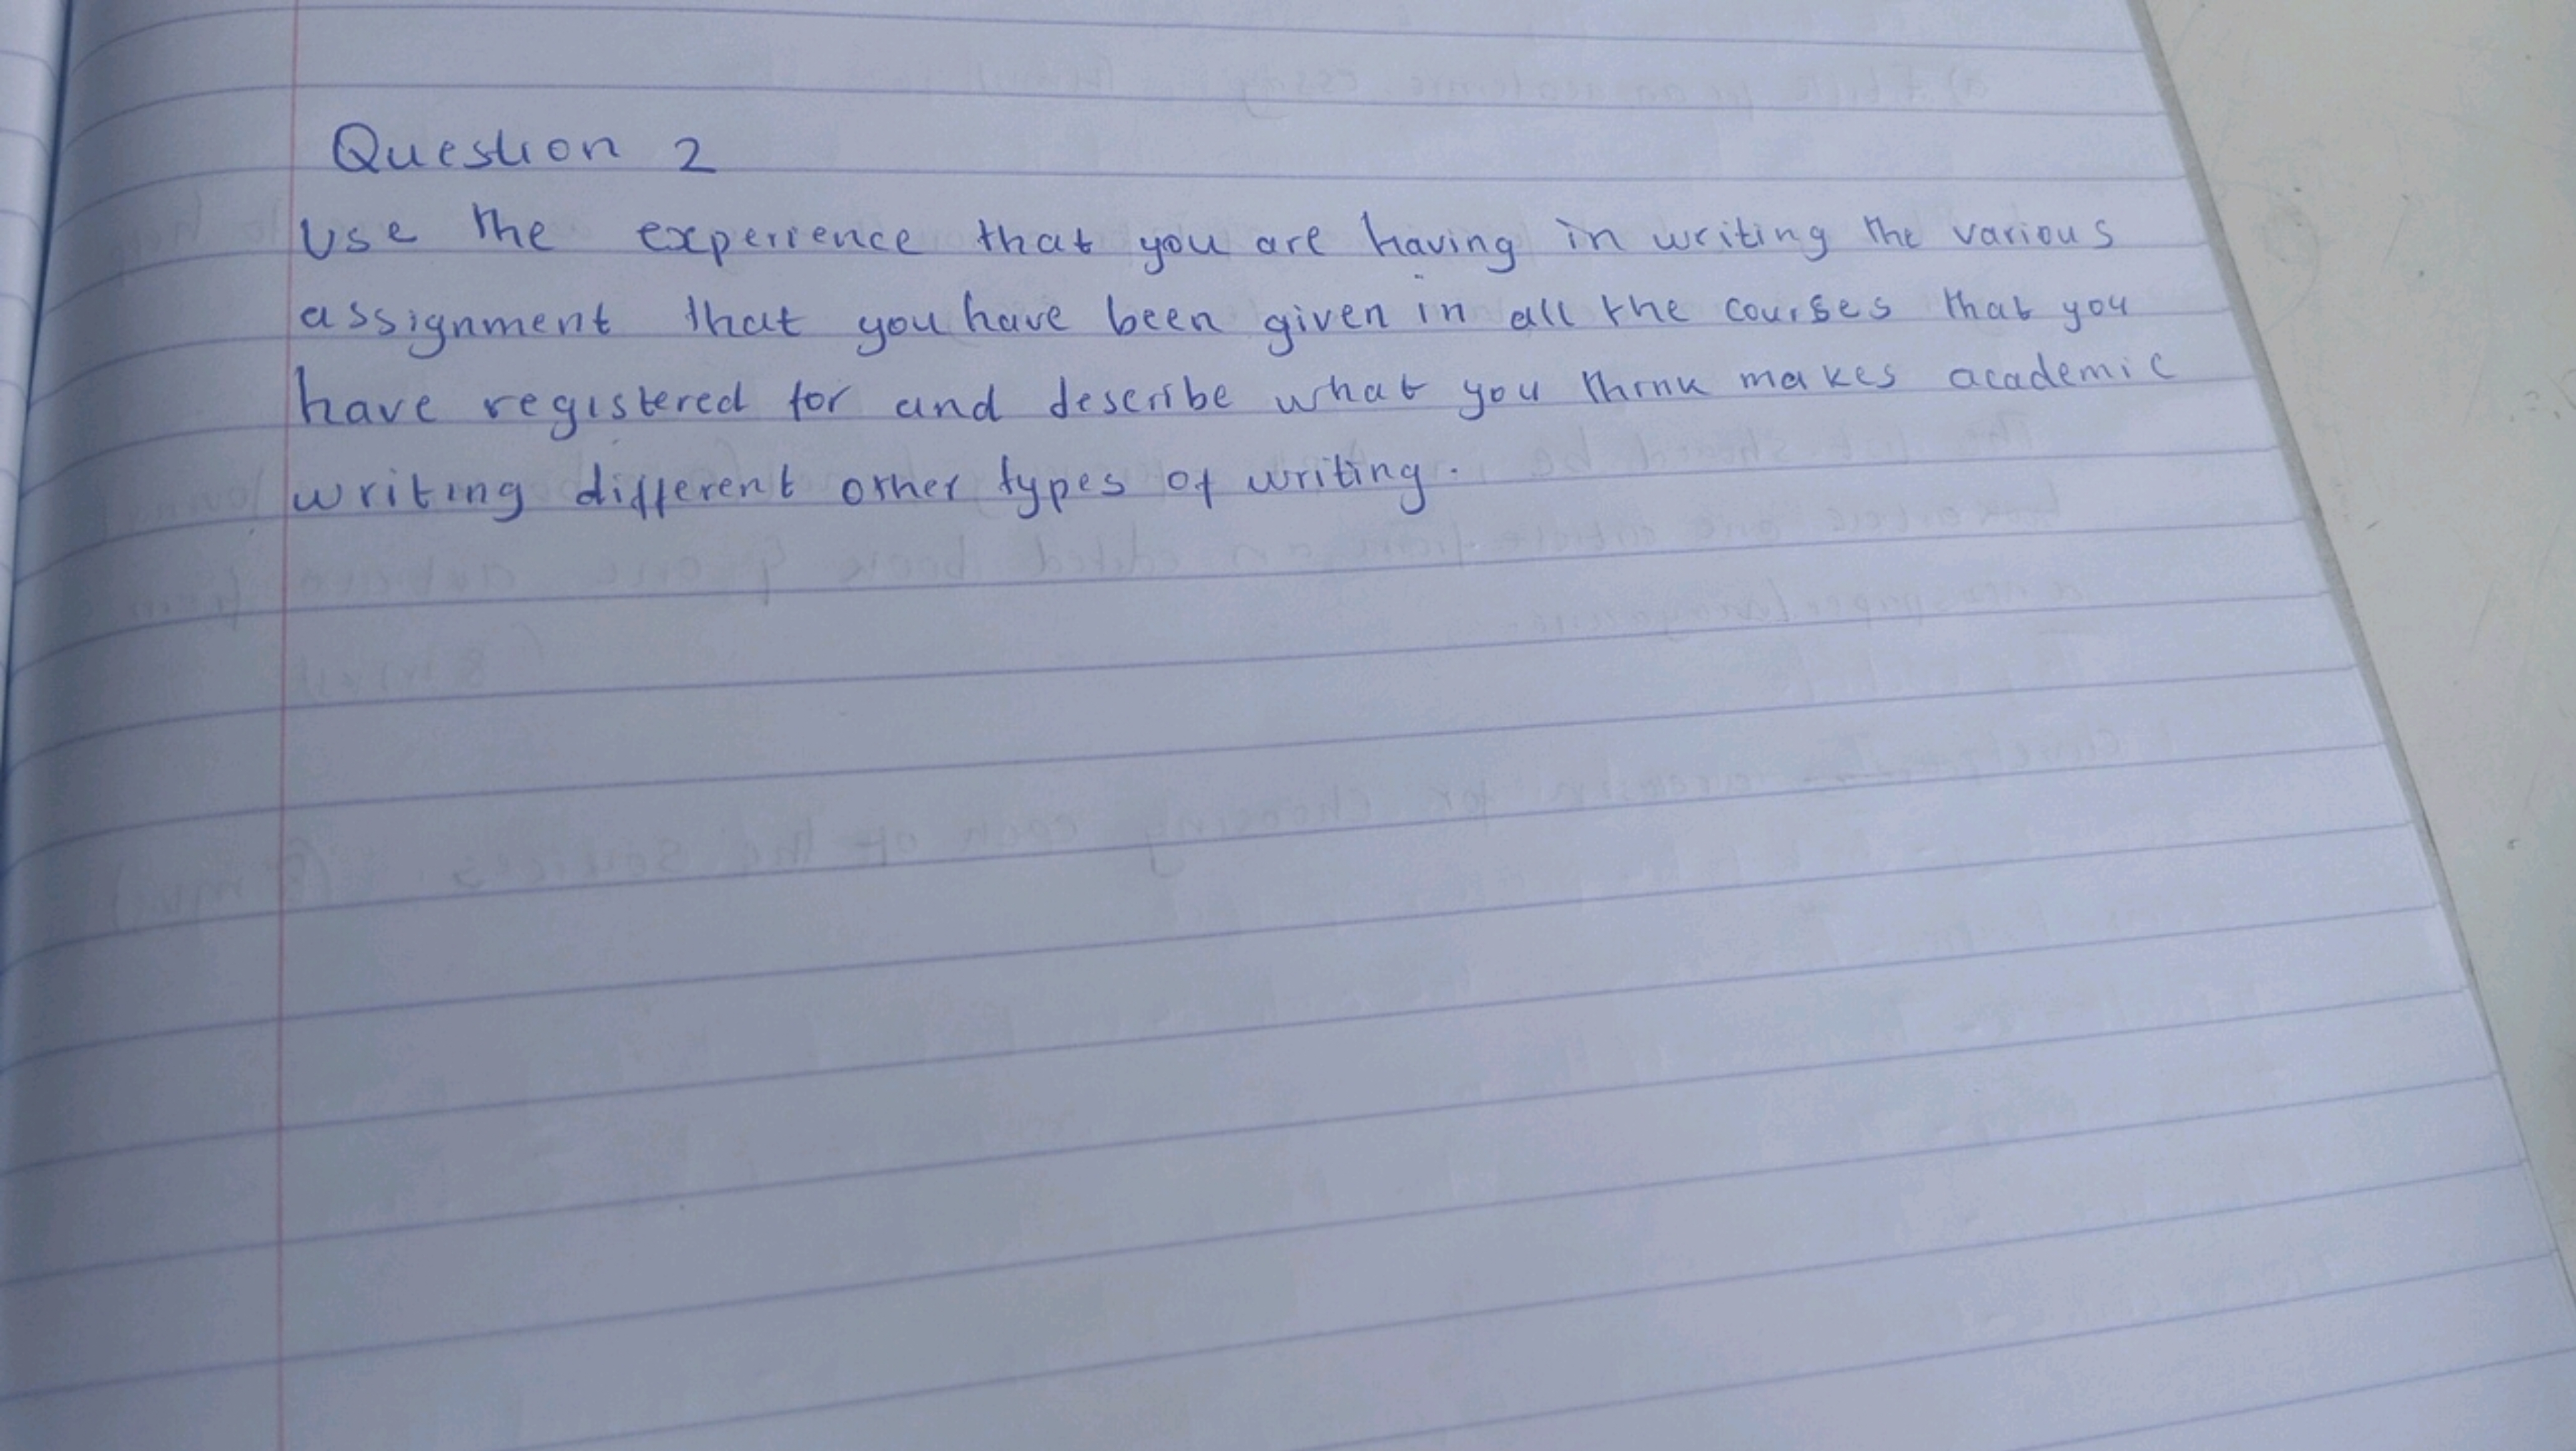 Question 2
Use the experience that you are having in writing the various
assignment that you have been given in all the courses that you
have registered for and describe what you think makes academic
writing different other types of writing.